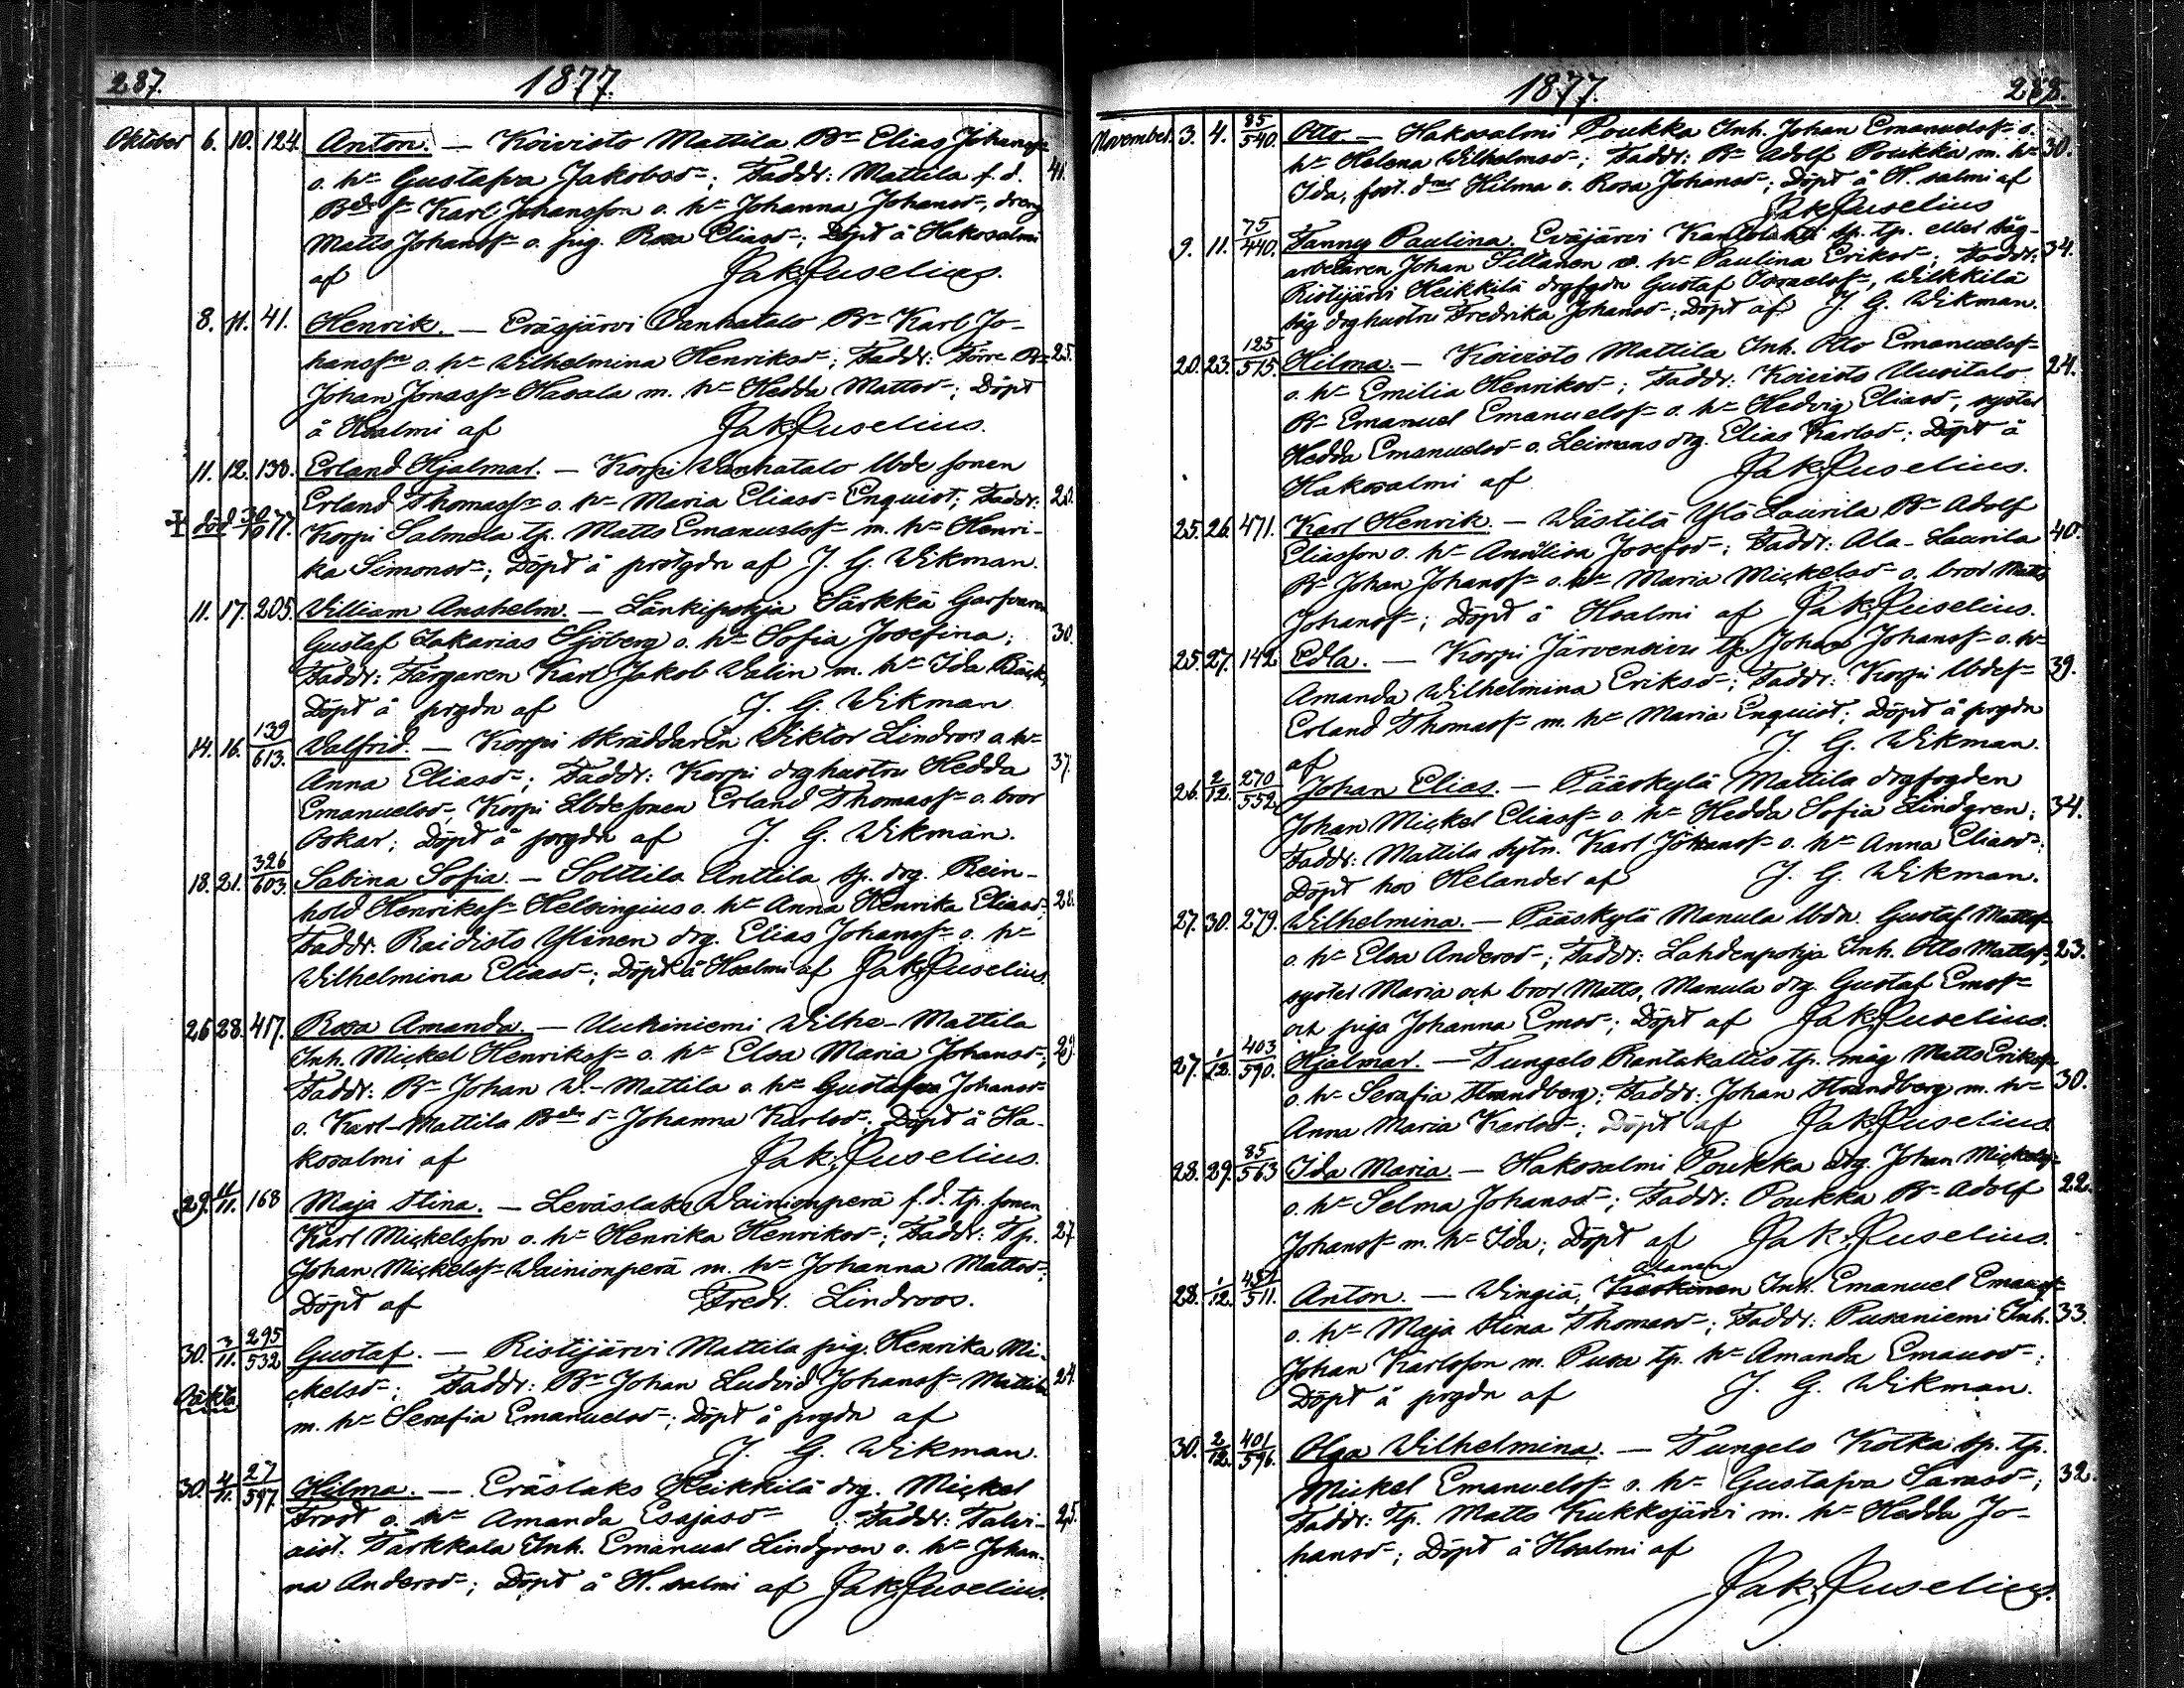 287.
1877.
Oktober 6. 10. 124. Anton. — Koivisto Mattila Bn Elias Johansf=
o. h= Gustafva Jakobsd=; Faddr: Mattila f.d. 41.
Bde f= Karl Johansson o. h= Johanna Johansd=, dreng
Matts Johansf= o. pig. Rosa Eliasd=; Döpt å Hakosalmi
af Jak. Juselius.
8. 11. 41. Henrik. — Eräjärvi Vanhatalo Bn Karl Jo-
hansfn o. h= Wilhelmina Henriksd=; Faddr: Förre Bn 25.
Johan Jonasf= Hasala m. h= Hedda Mattsd=; Döpt
å Hsalmi af Jak. Juselius.
11. 12. 130. Erland Hjalmar. — Korpi Vanhatalo lbde sonen
Erland Thomasf= o. h= Maria Eliasd= Enquist; Faddr: 20.
död 30/10 77. Korpi Salmela tp. Matts Emanuelsf= m. h= Henri-
ka Simonsd=; Döpt å prstgdn af J. G. Wikman.
11. 17. 205. William Anshelm. — Länkipohja Särkkä Garfvaren
Gustaf Zakarias Sjöberg o. h= Sofia Josefina; 30.
Faddr: Färgaren Karl Jakob Walin m. h= Ida Bäck,
Döpt å prgdn af J. G. Wikman.
14. 16. 139/613. Walfrid. — Korpi skräddaren Viktor Lindros o. h=
Anna Eliasd=; Faddr: Korpi drghustru Hedda 37.
Emanuelsd=, Korpi Lbdesonen Erland Thomasf= o. bror
Oskar; Döpt å prgdn af J. G. Wikman.
18. 21. 326/603. Sabina Sofia. — Solttila Anttila sp. drg. Rein-
hold Henriksf= Helsingius o. h= Anna Henrika Eliasd=; 28.
Faddr: Raidisto Ylinen drg. Elias Johansf= o. h=
Wilhelmina Eliasd=; Döpt å Hsalmi af Jak. Juselius.
26 28. 417. Rosa Amanda. — Uukiniemi Wilhe-Mattila
Inh. Mickel Henriksf= o. h= Elsa Maria Johansd=; 29
Faddr: Bn Johan W.-Mattila o. h= Gustafva Johansd=
o. Karl-Mattila Bde d= Johanna Karlsd=; Döpt å Ha-
kosalmi af Jak. Juselius.
29. 11/11. 168 Maja Stina. — Leväslaks Wainionperä f.d. tp. sonen
Karl Mickelsson o. h= Henrika Henriksd=; Faddr: Tp. 27.
Johan Mickelsf= Wainionperä m. h= Johanna Mattsd=;
Döpt af Fredr. Lindroos.
30. 3/11. 295/532 Gustaf. — Ristijärvi Mattila pig. Henrika Mi-
oäkta ckelsd=; Faddr: Bn Johan Ludvid Johansf= Mattila 24.
m. h= Serafia Emanuelsd=; Döpt å prgdn af
J. G. Wikman.
30. 4/11. 27/597. Hilma. — Eräslaks Heikkilä drg. Mickel
Frost o. h= Amanda Esajasd= ; Faddr: Talvi- 25.
aist. Tarkkala Inh. Emanuel Lindgren o. h= Johan-
na Andersd=; Döpt å H. salmi af Jak. Juselius.
1877.
288.
November. 3. 4. 85/540. Otto. — Hakosalmi Poukka Inh. Johan Emanuelsf= o.
h= Helena Wilhelmsd=; Faddr: Bn Adolf Poukka m. h= 30.
Ida, fost. dna Hilma o. Rosa Johansd=; Döpt å H. salmi af
Jak. Juselius
9. 11. 75/440. Fanny Paulina. Eväjärvi Kantolahti sp. tp. eller såg-
arbetaren Johan Sillanen o. h= Paulina Eriksd=; Faddr: 34.
Ristijärvi Heikkilä drgfgdn Gustaf Israelsf=, Wilkkilä
såg drghustru Fredrika Johansd=; Döpt af J. G. Wikman.
20. 23. 125/515. Hilma. — Koivisto Mattila Inh. Otto Emanuelsf=
o. h= Emilia Henriksd=; Faddr: Koivisto Uusitalo 24.
Bn Emanuel Emanuelsf= o. h= Hedvig Eliasd=, syster
Hedda Emanuelsd= o. Leimans drg. Elias Karlsd=; Döpt å
Hakosalmi af Jak. Juselius.
25. 26. 471. Karl Henrik. — Wästilä Ylö Laurila Bn Adolf
Eliasson o. h= Annalisa Josefsd=; Faddr: Ala-Laurila 40.
Bn Johan Johansf= o. h= Maria Mickelsd= o. bror Matts
Johansf=; Döpt å Hsalmi af Jak. Juselius.
25. 27. 142 Edla. — Korpi Järvensivu tp. Johan Johansf= o. h=
Amanda Wilhelmina Eriksd=; Faddr: Korpi lbdef= 39.
Erland Thomasf= m. h= Maria Enquist; Döpt å prgdn
af J. G. Wikman.
26. 2/12. 270/552. Johan Elias. — Pääskylä Mattila drgfogden
Johan Mickel Eliasf= o. h= Hedda Sofia Lindgren; 34.
Faddr: Mattila hytn. Karl Johansf= o. h= Anna Eliasd=;
Döpt hos Helander af J. G. Wikman.
27. 30. 279. Wilhelmina. — Pääskylä Manula lbdn. Gustaf Mattsf=
o. h= Elsa Andersd=; Faddr: Lahdenpohja Inh. Otto Mattsf=, 23.
syster Maria och bror Matts, Manula drg. Gustaf Emsf=
och piga Johanna Emsd=; Döpt af Jak. Juselius.
27. 1/12. 403/590. Hjalmar. — Tungelo Rantakallio tp. måg Matts Eriksf=
o. h= Serafia Strandberg; Faddr: Johan Strandberg m. h= 30.
Anna Maria Karlsd=; Döpt af Jak. Juselius.
28. 29. 85/563 Ida Maria. — Hakosalmi Poukka drg. Johan Mickelsf=
o. h= Selma Johansd=; Faddr: Poukka Bn Adolf 22.
Johansf= m. h= Ida; Döpt af Jak. Juselius.
28. 1/12. 457/511. Anton. — Wingiä, Inh. Emanuel Emansf=
o. h= Maja Stina Thomasd=; Faddr: Pusaniemi Inh. 33.
Johan Karlsson m. Pusa tp. h= Amanda Emansd=;
Döpt å prgdn af J. G. Wikman.
30. 2/12. 401/596. Olga Wilhelmina. — Tungelo Kotka sp. tp.
Mickel Emanuelsf= o. h= Gustafva Sarasd=; 32.
Faddr: Tp. Matts Kukkojärvi m. h= Hedda Jo-
hansd=; Döpt å Hsalmi af
Jak. Juselius.